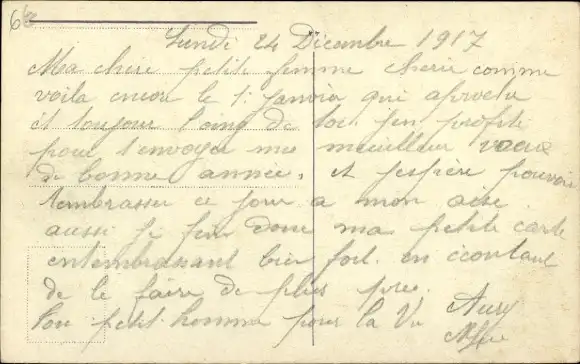 66
Lundi 24 Décembre 1917
Ma chère petite femme chérie comme
voila encore le 1er Janvier qui aproche
et toujours loing de toi. j'en profite
pour t'envoyer mes meilleur vœux
de bonne année. et j'espère pouvoir
t'embrasser ce jour a mon aise
aussi je fini donc ma petite carte
en t'embrassant bien fort. en
de le faire de plus près.
Ton petit homme pour la Vie